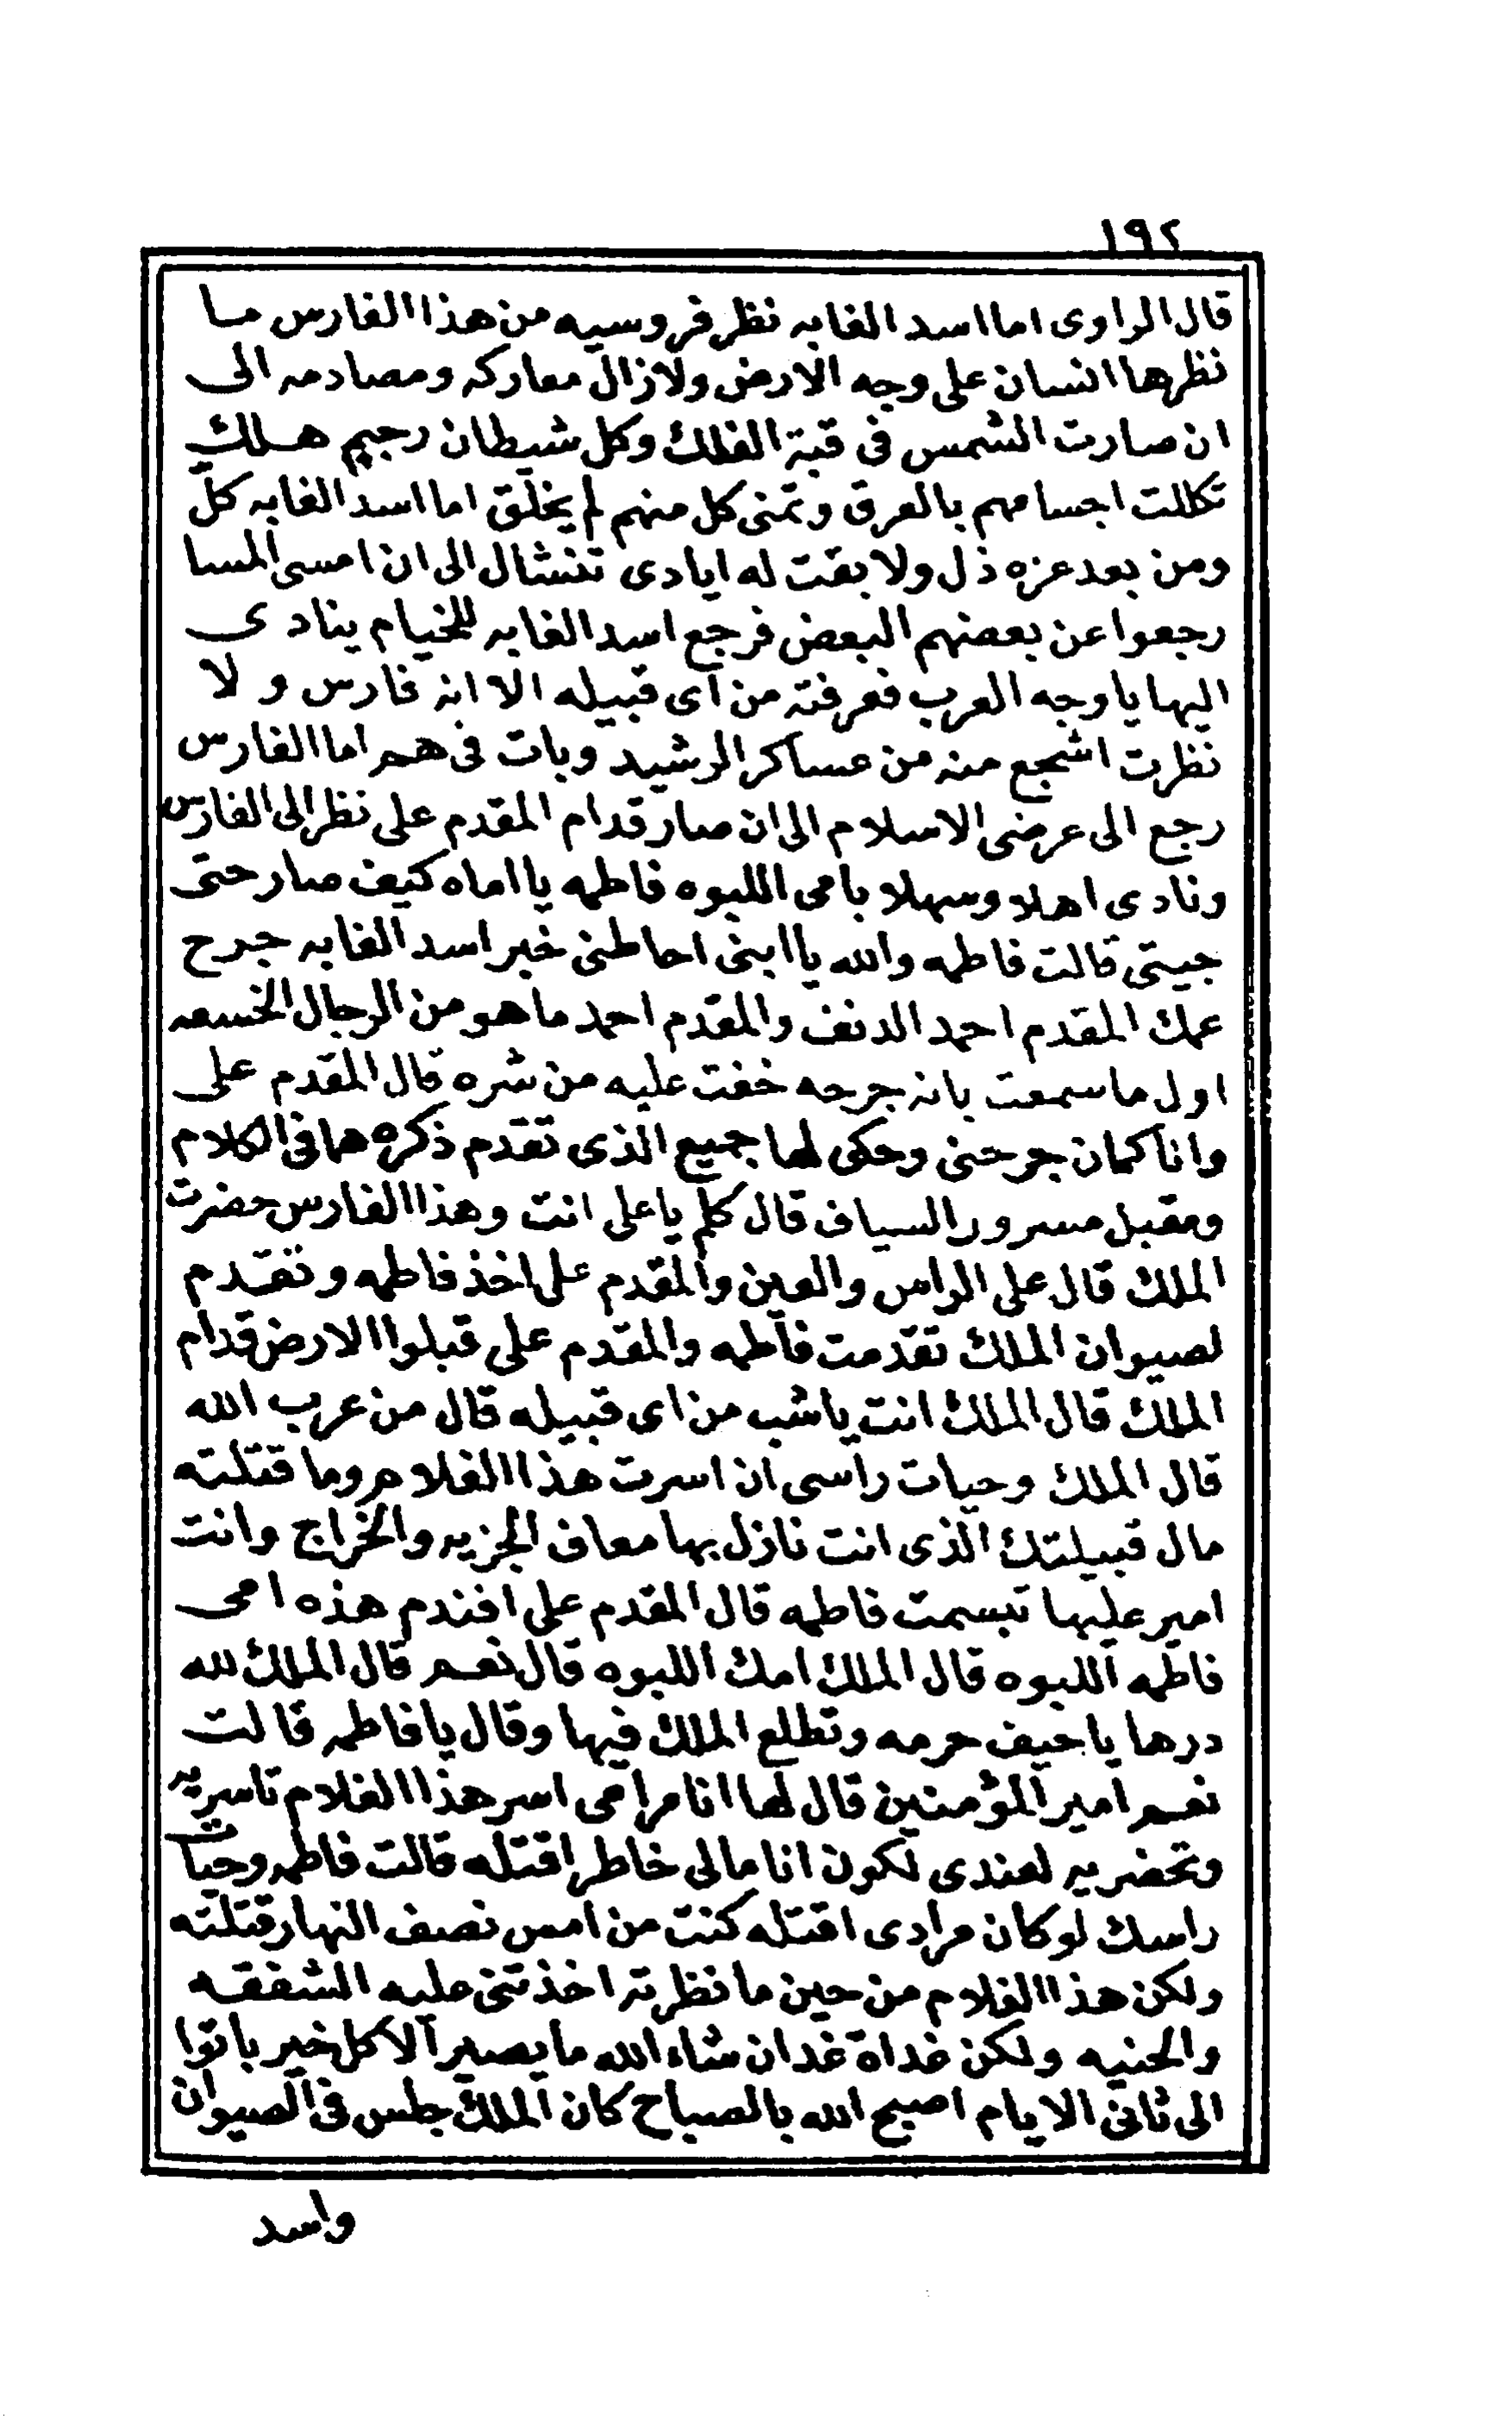 ١٩٢
قال الراوى اما اسد الغابه نظر فروسيه من هذا الفارس ما
نظرها انسان على وجه الارض ولازال معاركه ومصادمه الى
ان صارت الشمس فى قبة الفلك وكل شيطان رجيم هلك
تكللت اجسامهم بالعرق وتمنى كل منهم لم يخلق اما اسد الغابه كل
ومن بعد عزه ذل ولا بقت له ايادى تنشال الى ان امسى المسا
رجعوا عن بعضهم البعض فرجع اسد الغابه للخيام ينادى
اليها يا وجه العرب فعرفته من اى قبيله الا انه فارس ولا
نظرت اشجع منه من عساكر الرشيد وبات فى هم اما الفارس
رجع الى عرضى الاسلام الى ان صار قدام المقدم على نظر الى الفارس
ونادى اهلا وسهلا بامى اللبوه فاطمه يا اماه كيف صار حتى
جيتى قالت فاطمه والله يا ابنى احاطنى خبر اسد الغابه جرح
عمك المقدم احمد الدنف والمقدم احمد ما هو من الرجال الخسعه
اول ما سمعت بانه جرحه خفت عليه من شره قال المقدم على
وانا كمان جرحنى وحكى لها جميع الذى تقدم ذكره هما فى الكلام
ومقبل مسرور السياف قال كلم يا على انت وهذا الفارس حضرت
الملك قال على الراس والعين والمقدم على اخذ فاطمه وتقدم
لصيوان الملك تقدمت فاطمه والمقدم على قبلوا الارض قدام
الملك قال الملك انت يا شب من اى قبيله قال من عرب الله
قال الملك وحيات راسى ان اسرت هذا الغلام وما قتلته
مال قبيلتك الذى انت نازل بها معاف الجزيه والخراج وانت
امير عليها تبسمت فاطمه قال المقدم على افندم هذه امى
فاطمه اللبوه قال الملك امك اللبوه قال نعم قال الملك لله
درها يا حيف حرمه وتطلع الملك فيها وقال يا فاطمه قالت
نعم امير المؤمنين قال لها انا مرامى اسر هذا الغلام تاسريه
وتحضريه لعندى لكون انا مالى خاطر اقتله قالت فاطمه وحيات
راسك لو كان مرادى اقتله كنت من امس نصف النهار قتلته
ولكن هذا الغلام من حين ما نظرته اخذتنى عليه الشفقه
والحنيه ولكن غداة غدان شاء الله ما يصير الا كل خير باتوا
الى ثانى الايام اصبح الله بالصباح كان الملك جلس فى الصيوان
واسد